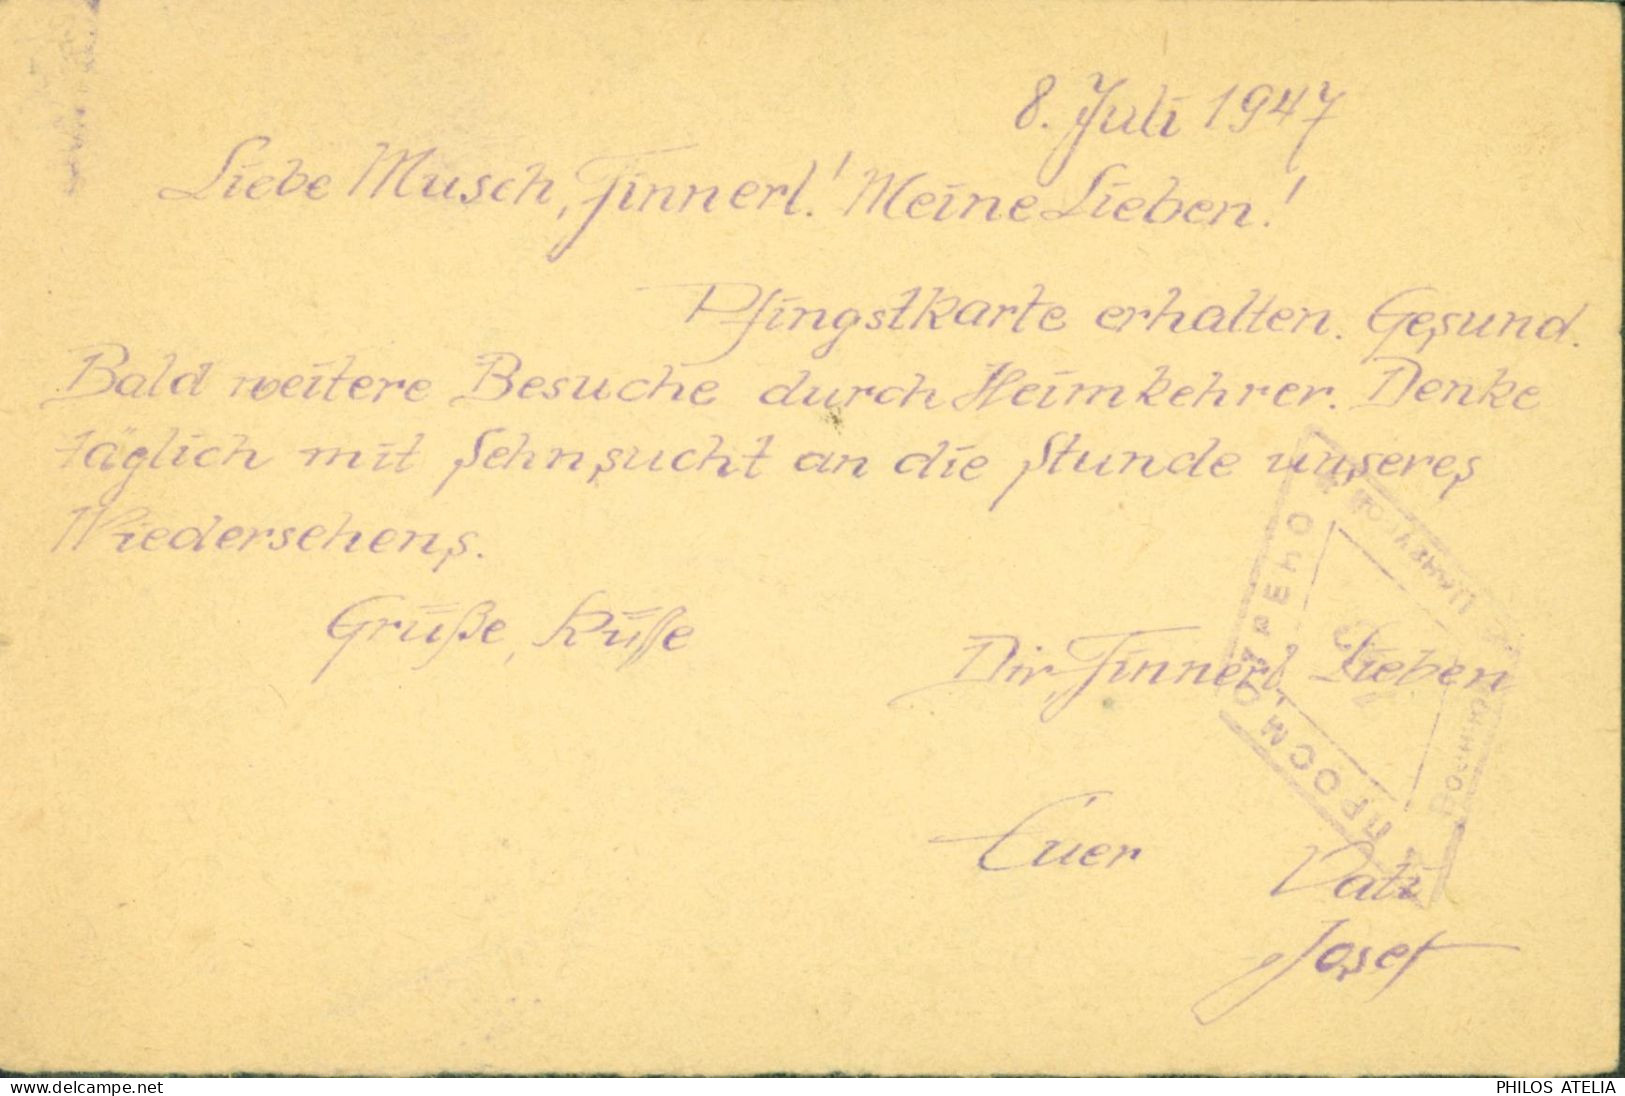 8. Juli 1947
Liebe Musch, Tinnerl! Meine Lieben!
Pfingstkarte erhalten. Gesund.
Bald weitere Besuche durch Heimkehrer. Denke
täglich mit Sehnsucht an die Stunde unseres
Wiedersehens.
Grüße, Küsse
Dir, Tinnerl Lieben
Euer Vati
Josef
ПРОСМОТРЕНО
PHILOS ATELIA